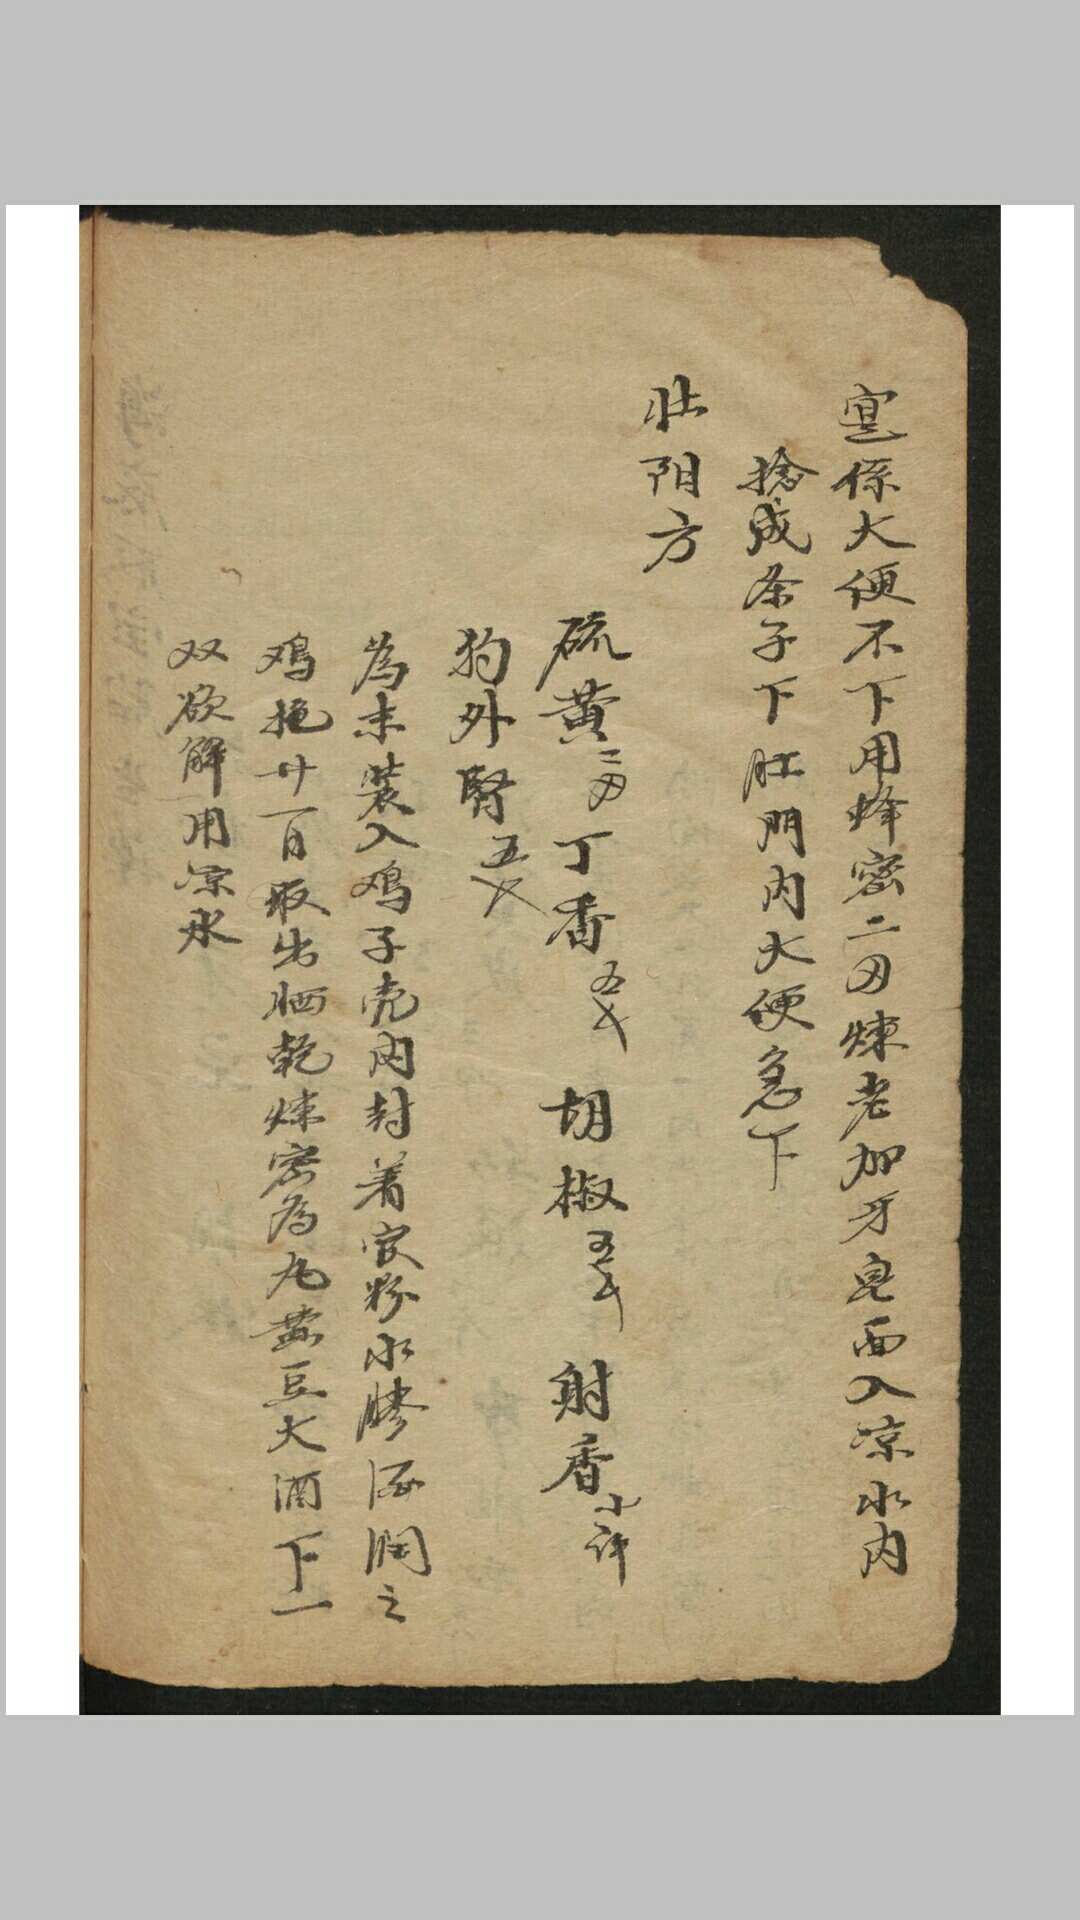 寔係大便不下用烽密二刄煉老加牙皂面入凉水内
捻成条子下肛門内大便急下
壮阳方
硫黄二刄丁香五戋 胡椒五戋 射香少许
狗外腎五戋
為末装入鸡子壳内封着官粉水膠酒润之
鸡抱廿一日取出晒乾煉密為丸黄豆大酒下一
双欲解用凉水